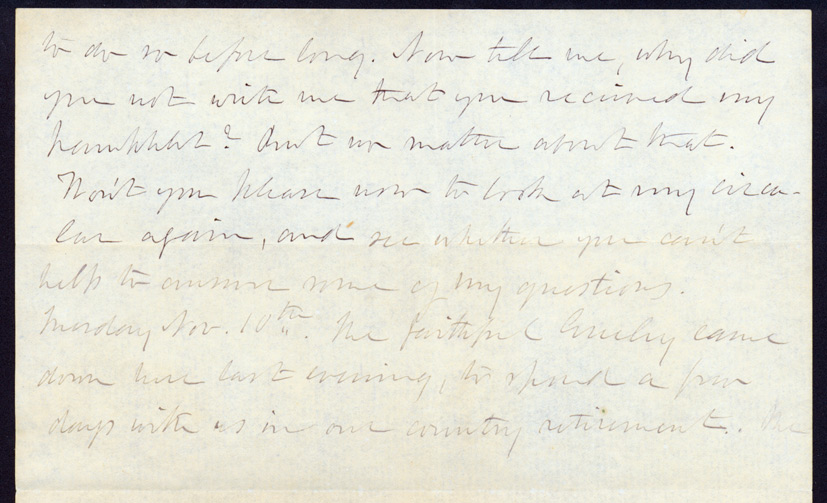 to do so before long. Now tell me, why did
you not write me that you received my
pamphlet? But no matter about that.
Won't you please now to look at my circu-
lar again, and see whether you can't
help to answer some of my questions.
Monday Nov. 10th. The faithful Greeley came
down here last evening, to spend a few
days with us in our country retirement. He